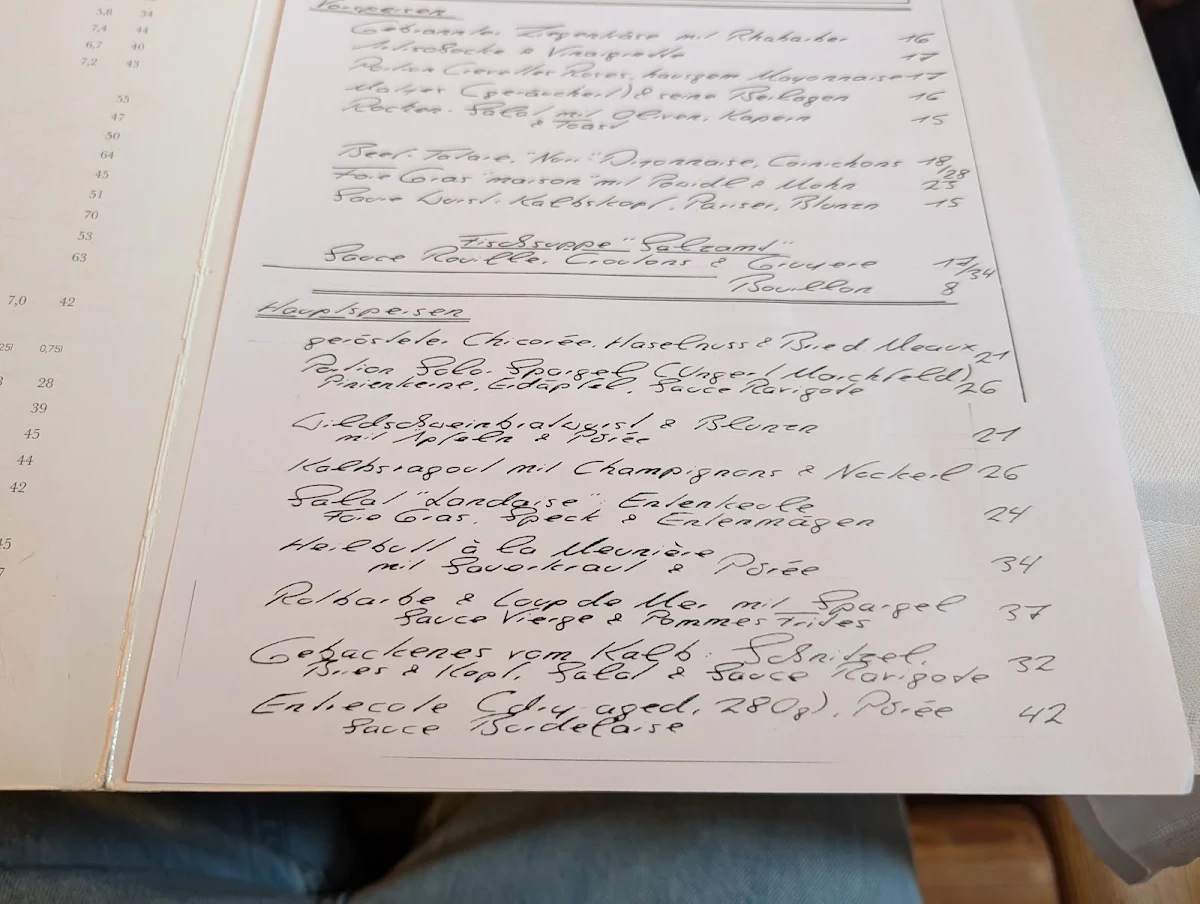 5,8 34
7,4 44
6,7 40
7,2 43
55
47
50
64
45
51
70
53
63
7,0 42
25l 0,75l
28
39
45
44
42
Vorspeisen
Gebrannter Ziegenkäse mit Rhabarber 16
Artischocke & Vinaigrette 17
Portion Crevettes Roses, hausgem Mayonnaise 17
Matjes (geräuchert) & seine Beilagen 16
Rochen-Salat mit Oliven, Kapern 15
& Toast
Beef-Tatare, Dijonnaise, Cornichons 18/28
Foie Gras "maison" mit Powidl & Mohn 25
Saure Wurst: Kalbskopf, Pariser, Blunzn 15
Fischsuppe "Salzamt"
Sauce Rouille, Croutons & Gruyere 17/34
Bouillon 8
Hauptspeisen
gerösteter Chicorée, Haselnuss & Brie d. Meaux 21
Portion Solo-Spargel (Unger/Marchfeld)
Pinienkerne, Erdäpfel, Sauce Ravigote 26
Wildschweinbratwurst & Blunzn
mit Äpfeln & Pürée 21
Kalbsragout mit Champignons & Nockerl 26
Salat "Landaise": Entenkeule
Foie Gras, Speck & Entenmägen 24
Heilbutt à la Meunière
mit Sauerkraut & Pürée 34
Rotbarbe & Loup de Mer mit Spargel
Sauce Vierge & Pommes Frites 37
Gebackenes vom Kalb: Schnitzel,
Bries & Kopf, Salat & Sauce Ravigote 32
Entrecote (dry aged, 280g), Pürée 42
Sauce Bordelaise